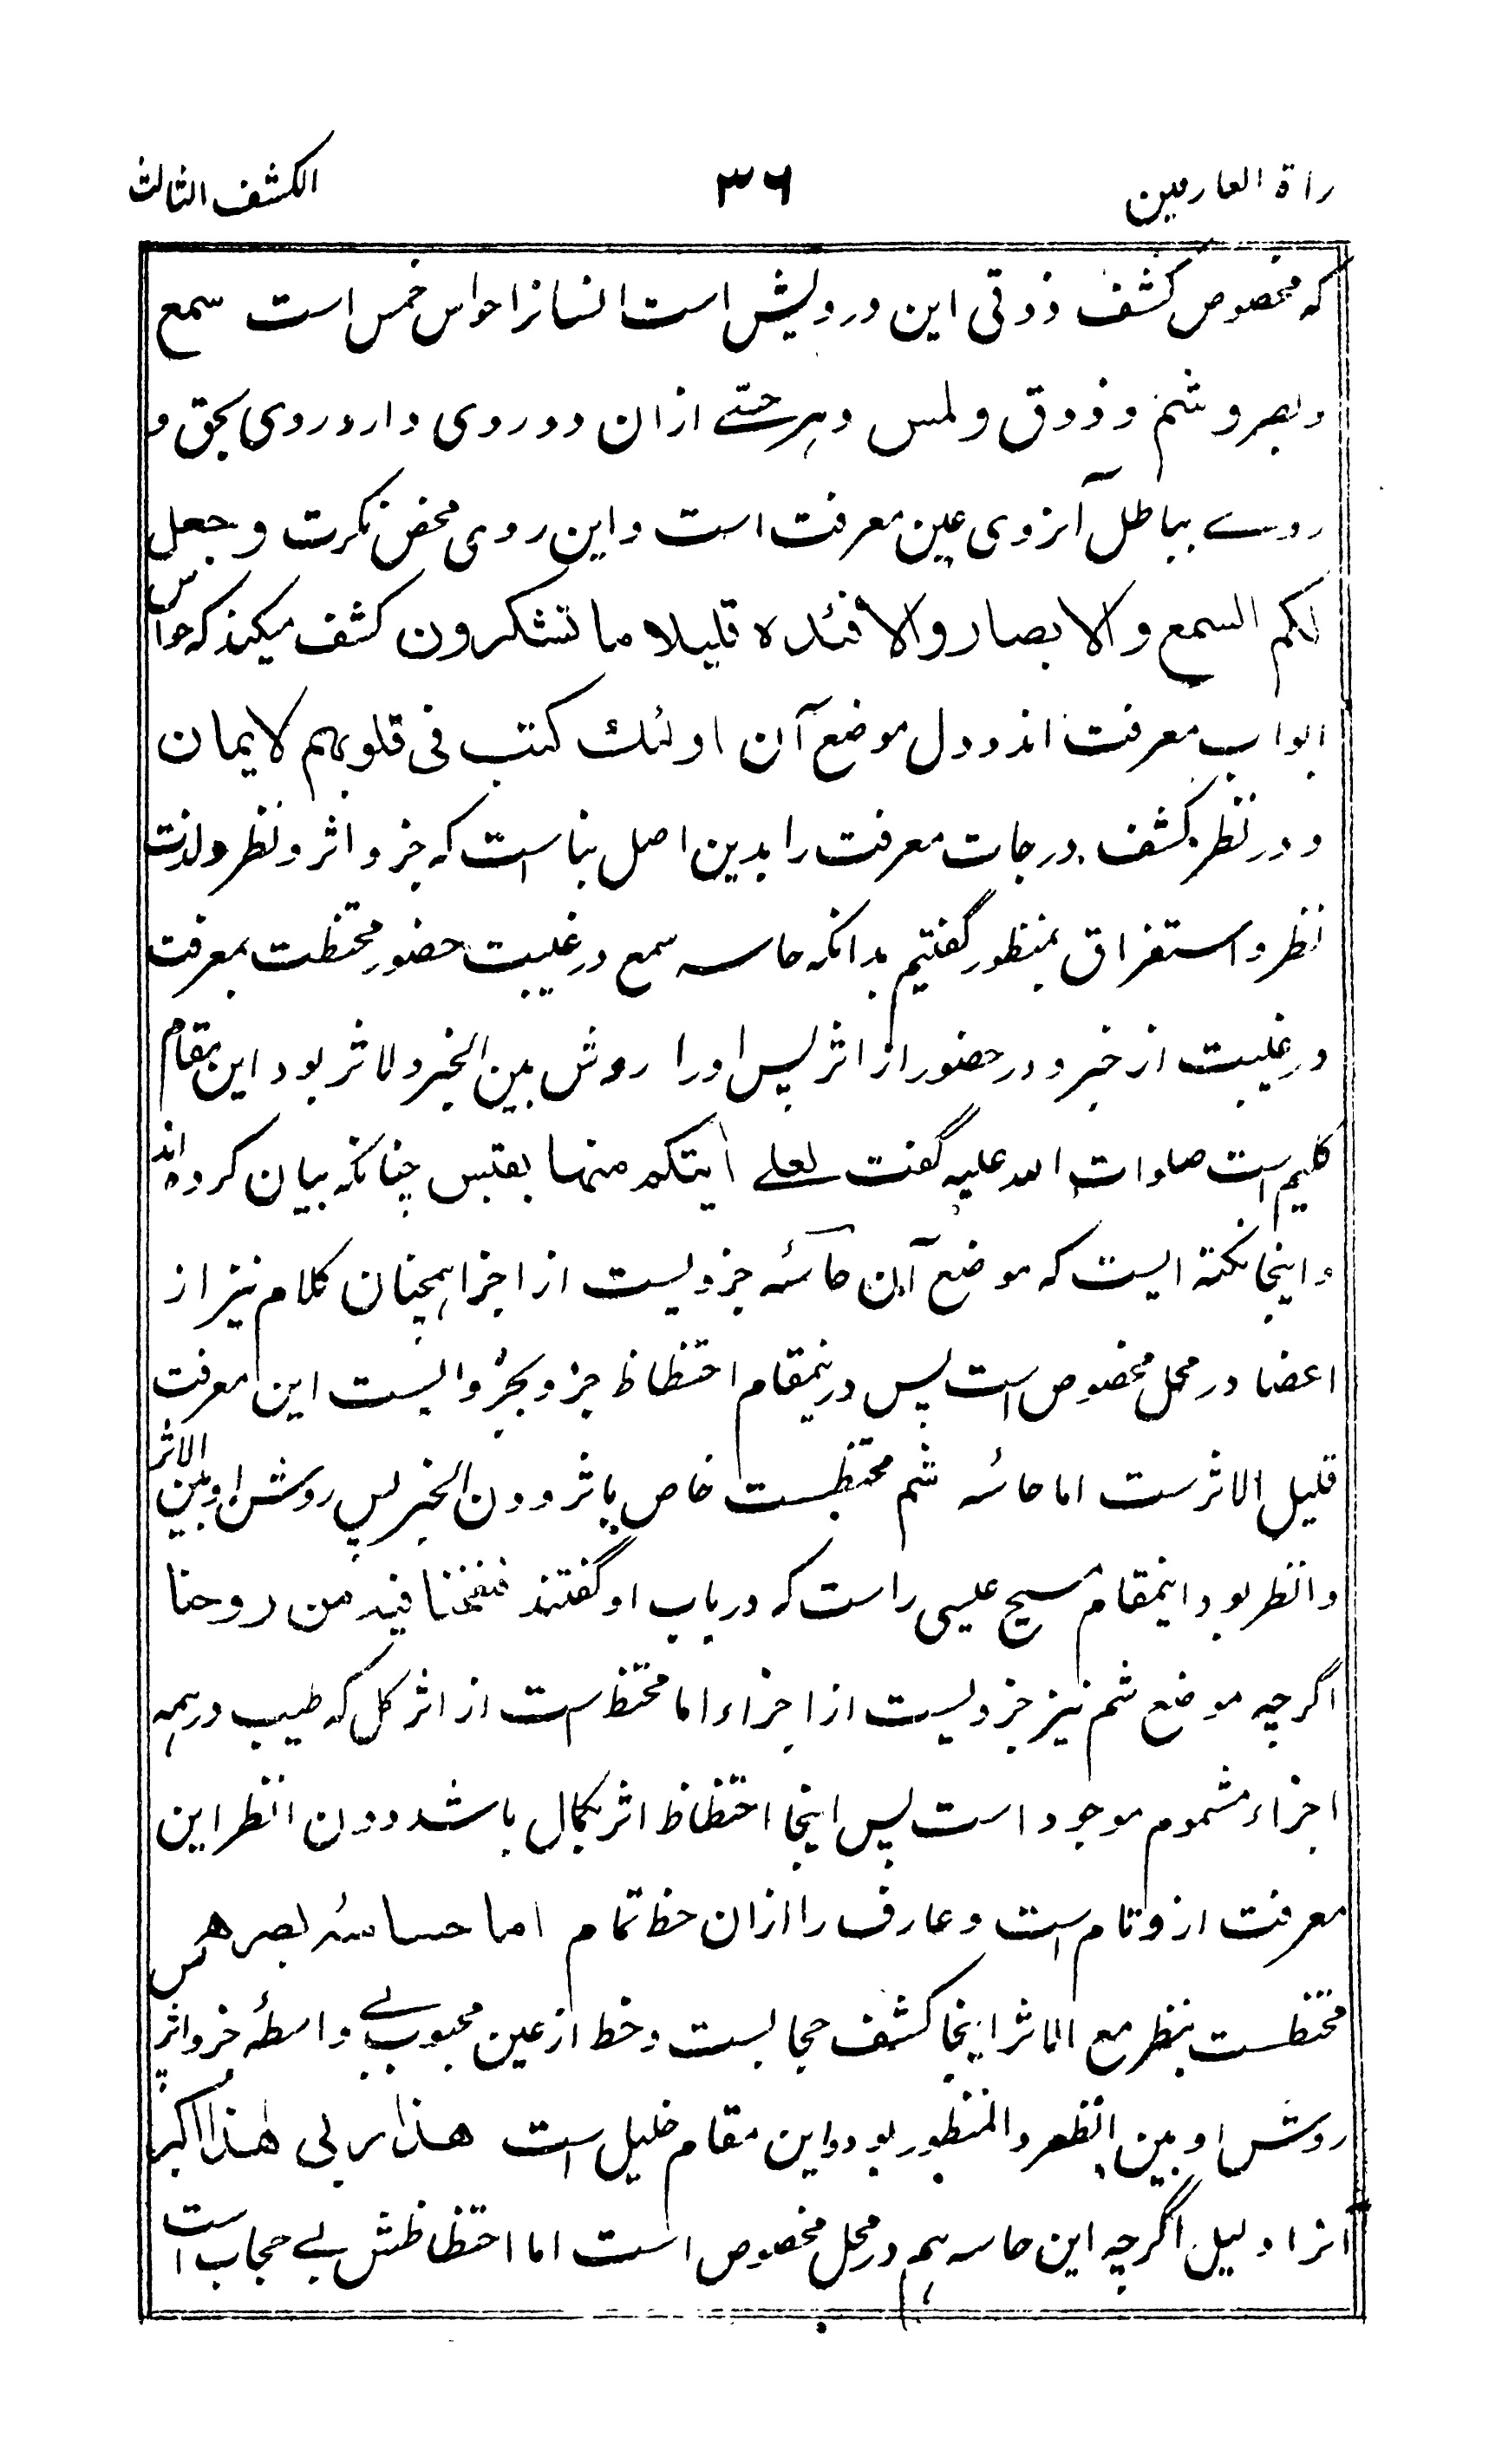 راة العارفين ۳۶ الكشف الثالث
كه مخصوص كشف ذوقی این درویش است انسانرا حواس خمس است سمع
وبصر و شم و ذوق و لمس و هر حسّے ازان دو روی دارد روی بحق و
روے بباطل آنروی عین معرفت است و این روی محض نکرت وجعل
لكم السمع والابصار والافئده قليلا ما تشكرون کشف میکند که حواس
ابواب معرفت اند و دل موضع آن اولئك كتب فی قلوبهم لایمان
و در نظر کشف درجات معرفت را بدین اصل بناست که خبر و اثر و نظر و لذت
نظر و استغراق بمنظور گفتیم بدانکه حاسه سمع در غیبت حضور محتظت بمعرفت
در غیبت از خبر و در حضور از اثر پس او را روش بین الخبر والاثر بود این مقام
کلیم است صلوات الله علیه گفت لعلے آیتكم منها بقبس چنانکه بیان کرده اند
و اینجا نکتۀ ایست که موضع آن حاسّه جزویست از اجزا همچنان کلام نیز از
اعضا در محل مخصوص است پس درینمقام احتظاظ جز و بجز و الیست این معرفت
قلیل الاثرست اما حاسۀ شم محتظست خاص باثر و دون الخبر پس روش او بین الاثر
والنظر بود اینمقام مسیح عیسی راست که در باب او گفتند فنفخنا فیه من روحنا
اگرچه موضع شم نیز جزویست از اجزاء اما محتظ است از اثر کل که طیب در همه
اجزاء مشموم موجود است پس اینجا احتظاظ اثر بکمال باشد دون النظر این
معرفت از و تام است و عارف را ازان حظ تمام اما حساسۀ بصر هس
محتظست بنظر مع الاثر اینجا کشف حجابست و حظ از عین محبوب بے واسطۀ خبر و اثر پس
روش او بین النظر والمنظور بود و این مقام خلیل است هذا ربی هذا اکبر
انرا دلیل اگرچه این حاسه هم در محل مخصوص است اما احتظاظش بے حجاب است